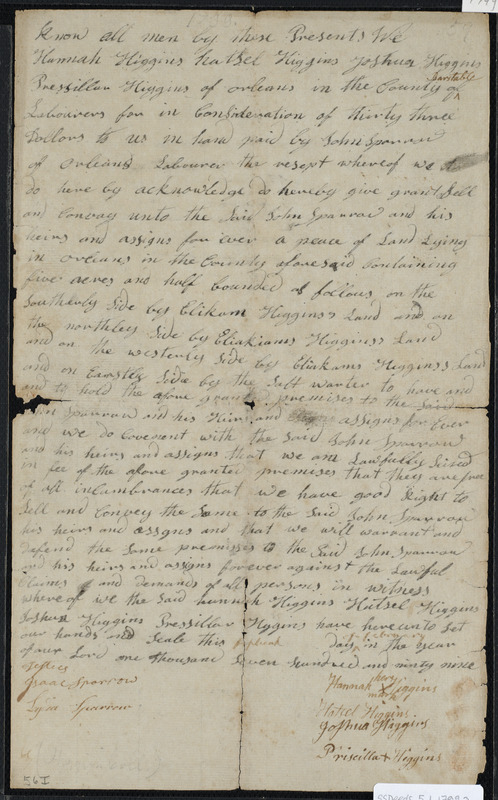 Know all men by these Presents We
Hannah Higgins hatsel Higgins Joshua Higgins
Pressillar Higgins of orleans in the County of
Barstable
Labourers for in Consideration of thirty three
Dollors to us in hand paid by John Sparrow
of Orleans Labourer the resept whereof we do
do here by acknowledge do hereby give grant Sell
and Convay unto the Said John Sparrow and his
heirs and assigns for ever a peace of Land Lying
in orleans in the County aforesaid Containing
five acres and half bounded as follous on the
Southerly Side by Elikam Higgins's Land and on
the northley Side by Eliakiams Higgins's Land
and on the westerly Side by Eliakams Higgins's Land
and on Easterly Side by the Salt warter to have and
and to hold the afore granted premises to the Said
John Sparrow and his Heirs and assigns for Ever
and we do Covenent with the Said John Sparrow
and his heirs and assigns that we are Lawfully Seised
in fee of the afore granted premeses that they are free
of all incumbrances that we have good Right to
Sell and Convey the Same to the Said John Sparrow
his heirs and assgns and that we will warrant and
defend the Same premisses to the Said John Sparrow
and his heirs and assigns forever against the Lawful
Claimes and demands of all persons in witness
whereof we the Said hannah Higgins Hatsel Higgins
Joshua Higgins Pressillar Higgins have here unto Set
our hands and Seale this day in the year
of our Lord one thousand Seven hundred and ninty nine
Isaac Sparrow
Sparrow
her
Hannah X Higgins
mark
Hatsel Higgins
Joshua Higgins
Priscilla Higgins
56I